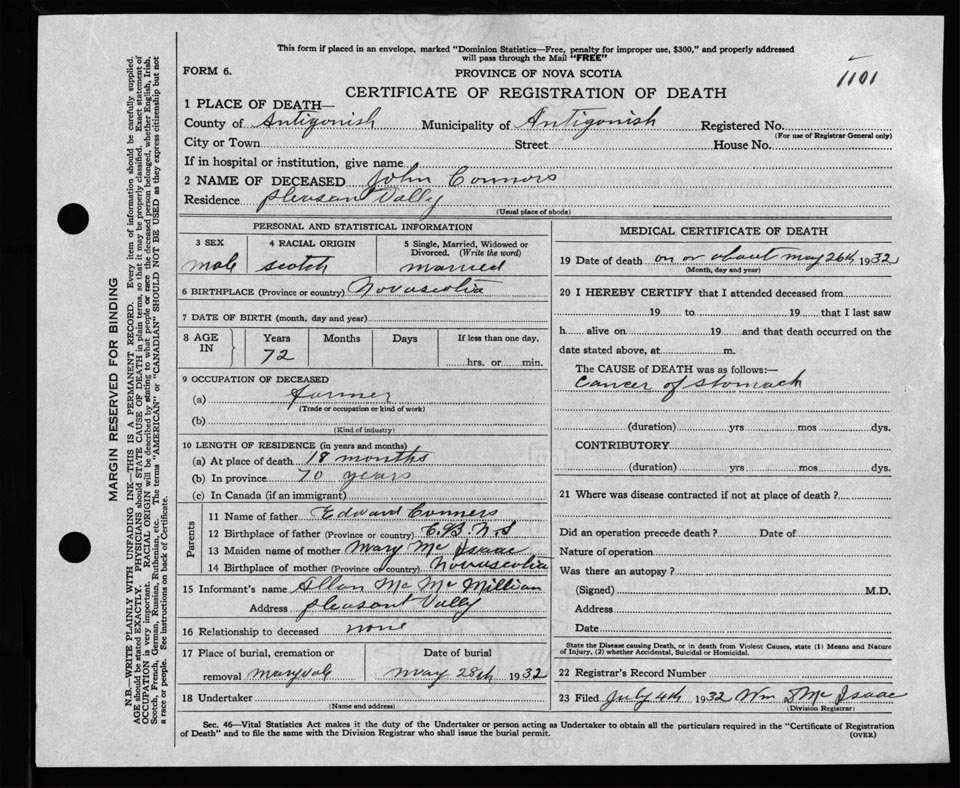 This form if placed in an envelope, marked "Dominion Statistics—Free, penalty for improper use, $300," and properly addressed
will pass through the Mail "FREE"
FORM 6.
PROVINCE OF NOVA SCOTIA
1101
CERTIFICATE OF REGISTRATION OF DEATH
1 PLACE OF DEATH—
County of Antigonish Municipality of Antigonish Registered No.
(For use of Registrar General only)
City or Town Street House No.
If in hospital or institution, give name
2 NAME OF DECEASED John Connors
Residence Pleasant Vally
(Usual place of abode)
PERSONAL AND STATISTICAL INFORMATION
3 SEX 4 RACIAL ORIGIN 5 Single, Married, Widowed or
Divorced. (Write the word)
male scotch married
6 BIRTHPLACE (Province or country) Novascotia
7 DATE OF BIRTH (month, day and year)
8 AGE IN Years Months Days If less than one day.
72 hrs. or min.
9 OCCUPATION OF DECEASED
(a) farmer
(Trade or occupation or kind of work)
(b)
(Kind of industry)
10 LENGTH OF RESIDENCE (in years and months)
(a) At place of death 18 months
(b) In province 70 years
(c) In Canada (if an immigrant)
Parents
11 Name of father Edward Conners
12 Birthplace of father (Province or country) C.B. N.S
13 Maiden name of mother Mary Mc Isaac
14 Birthplace of mother (Province or country) Novascotia
15 Informant's name Allan Mc Mc Millian
Address pleasant Vally
16 Relationship to deceased none
17 Place of burial, cremation or Date of burial
removal maryvale May 28th 1932
18 Undertaker
(Name and address)
MEDICAL CERTIFICATE OF DEATH
19 Date of death on or about may 26th 1932
(Month, day and year)
20 I HEREBY CERTIFY that I attended deceased from
19 to 19 that I last saw
h alive on 19 and that death occurred on the
date stated above, at m.
The CAUSE of DEATH was as follows:—
Cancer of stomach
(duration) yrs mos dys.
CONTRIBUTORY
(duration) yrs mos dys.
21 Where was disease contracted if not at place of death ?
Did an operation precede death ? Date of
Nature of operation
Was there an autopsy ?
(Signed) M.D.
Address
Date
State the Disease causing Death, or in death from Violent Causes, state (1) Means and Nature
of Injury, (2) whether Accidental, Suicidal or Homicidal.
22 Registrar's Record Number
23 Filed July 4th 1932 Wm D Mc Isaac
(Division Registrar)
Sec. 46—Vital Statistics Act makes it the duty of the Undertaker or person acting as Undertaker to obtain all the particulars required in the "Certificate of Registration
of Death" and to file the same with the Division Registrar who shall issue the burial permit.
(OVER)
MARGIN RESERVED FOR BINDING
N.B.—WRITE PLAINLY WITH UNFADING INK—THIS IS A PERMANENT RECORD. Every item of information should be carefully supplied.
AGE should be stated EXACTLY. PHYSICIANS should STATE CAUSE OF DEATH in plain terms, so that it may be properly classified. Exact statement of
OCCUPATION is very important. RACIAL ORIGIN will be described by stating to what people or race the deceased person belonged, whether English, Irish,
Scotch, French, German, Russian, Ruthenian, etc. The terms "AMERICAN" or "CANADIAN" SHOULD NOT BE USED as they express citizenship but not
a race or people. See instructions on back of Certificate.